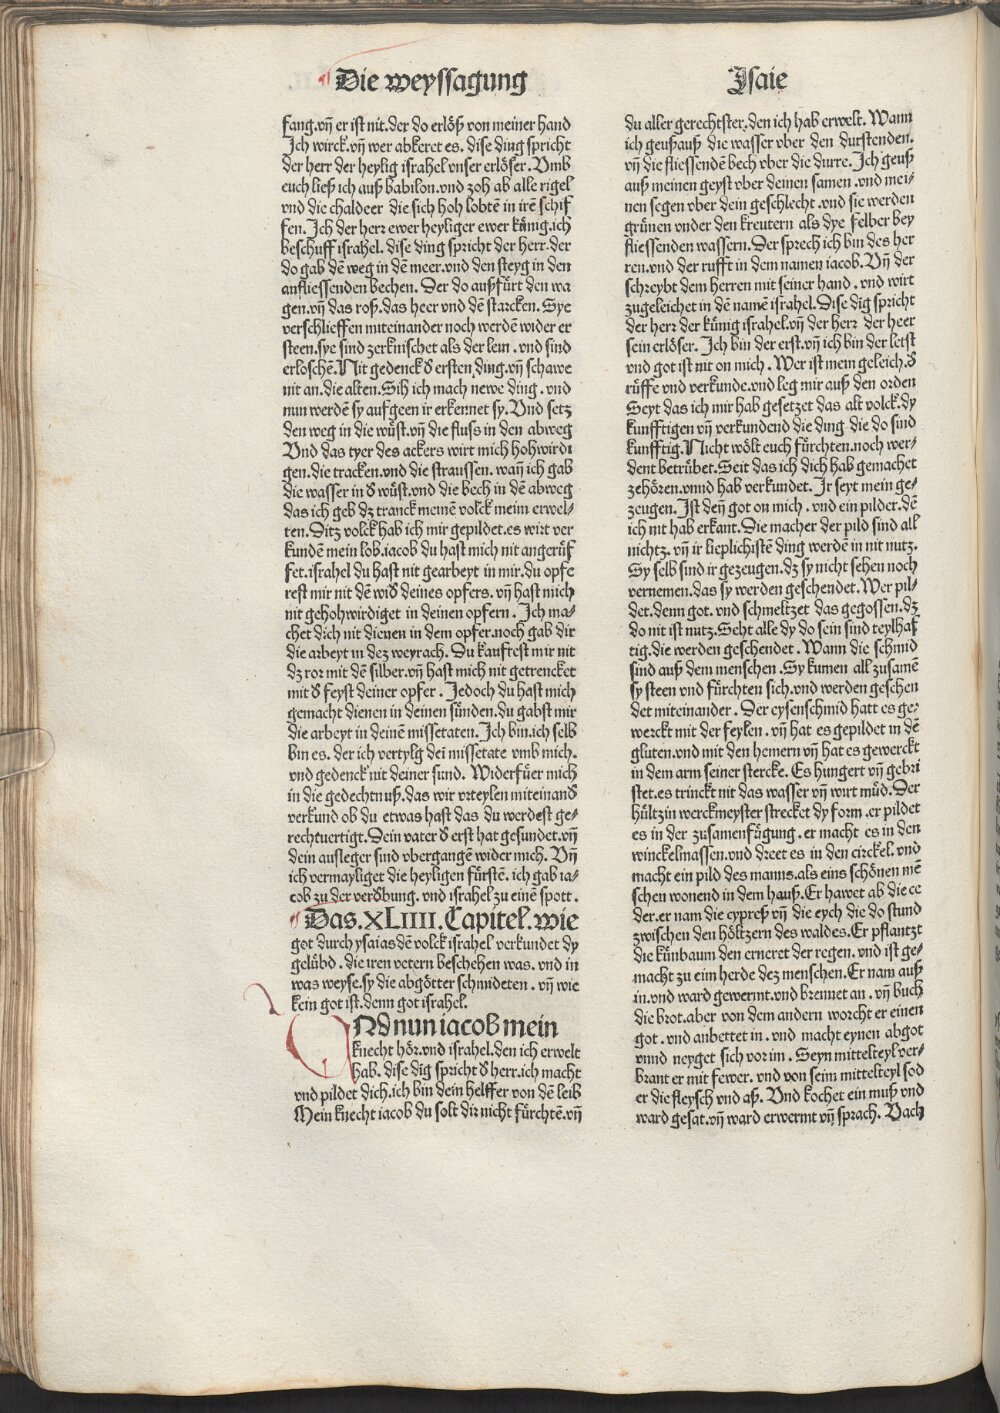 Die weyssagung
Isaie
fang.vñ er ist nit.der do erlöß von meiner hand
Ich wirck.vñ wer abkeret es. dise ding spricht
der herr der heylig israhel vnser erlöser. Vmb
euch ließ ich auß babilon.vnd zoh ab alle rigel
vnd die chaldeer die sich hoh lobtē in irē schif
fen. Ich der herr ewer heyliger ewer kőnig.ich
beschuff israhel. dise ding spricht der herr.der
do gab dē weg in dē meer.vnd den steyg in den
anfliessenden bechen. Der do außfürt den wa
gen.vñ das roß.das heer vnd dē starcken. Sye
verschlieffen miteinander noch werdē wider er
steen.sye sind zerknischet als der lein . vnd sind
erloschē.Nit gedenck d ersten ding.vñ schawe
nit an.die alten.Sih ich mach newe ding . vnd
nun werdē sy aufgeen ir erkennet sy.Vnd setz
den weg in die wüst.vñ die fluss in den abweg
Vnd das tyer des ackers wirt mich hohwirdi
gen.die tracken.vnd die straussen. wañ ich gab
die wasser in d wüst.vnd die bech in dē abweg
das ich geb dz tranck meinē volck meim erwel-
ten.Ditz volck hab ich mir gepildet.es wirt ver
kundē mein lob.iacob du hast mich nit angerüf
fet.israhel du hast nit gearbeyt in mir.du opfe
rest mir nit dē wid deines opfers. vñ hast mich
nit gehohwirdiget in deinen opfern . Ich ma-
chet dich nit dienen in dem opfer.noch gab dir
die arbeyt in dez weyrach. Du kaufest mir nit
dz ror mit dē silber.vñ hast mich nit getrencket
mit d feyst deiner opfer . Jedoch du hast mich
gemacht dienen in deinen sünden.du gabst mir
die arbeyt in deinē missetaten.Ich bin.ich selb
bin es. der ich vertylg dei missetate vmb mich.
vnd gedenck nit deiner sund. Widerfüer mich
in die gedechtnuß.das wir vrteylen miteinand
verkund ob du etwas hast das du werdest ge-
rechtuertigt.Dein vater d erst hat gesundet.vñ
dein ausleger sind vbergangē wider mich. Vñ
ich vermayliget die heyligen fürstē. ich gab ia-
cob zu der verdbung. vnd israhel zu einē spott.
Das.XLIIII.Capitel.wie
got durch ysaias dē volck israhel verkundet dy
gelübd . die iren vetern beschehen was. vnd in
was weyse.sy die abgötter schmideten . vñ wie
kein got ist.denn got israhel.
Nd nun iacob mein
knecht hőr.vnd israhel.den ich erwelt
hab. dise dig spricht d herr.ich macht
vnd pildet dich.ich bin dein helffer von dē leib
Mein knecht iacob du solt dir nicht fürchtē.vñ
du aller gerechtster.den ich hab erwelt. Wann
ich geußauß die wasser vber den durstenden.
vñ die fliessendē bech vber die durre. Ich geuß
auß meinen geyst vber deinen samen .vnd mei-
nen segen vber dein geschlecht .vnd sie werden
grünen vnder den kreutern als dye felber bey
fliessenden wassern.Der sprech ich bin des her
ren.vnd der rufft in dem namen iacob. Vñ der
schreybt dem herren mit seiner hand . vnd wirt
zugeleichet in dē namē israhel. Dise dig spricht
der herr der kűnig israhel.vñ der herr der heer
sein erlöser. Ich bin der erst.vñ ich bin der letst
vnd got ist nit on mich . Wer ist mein geleich.d
rüffe vnd verkunde.vnd leg mir auß den orden
Seyt das ich mir hab gesetzet das alt volck.dy
kunfftigen vñ verkundend die ding die do sind
kunfftig.Nicht wölt euch fürchten.noch wer-
dent betrübet.Seit das ich dich hab gemachet
zehören.vnnd hab verkundet. Ir seyt mein ge-
zeugen. Ist deñ got on mich . vnd ein pilder.dē
ich nit hab erkant.Die macher der pild sind all
nichtz. vñ ir lieplichistē ding werdē in nit nutz.
Sy selb sind ir gezeugen.dz sy nicht sehen noch
vernemen.das sy werden geschendet.Wer pil-
det.denn got. vnd schmeltzet das gegossen.dz
do nit ist nutz.Seht alle dy do sein sind teylhaf
tig.die werden geschendet . Wann die schmid
sind auß dem menschen .Sy kumen all zusamē
sy steen vnd fürchten sich.vnd werden geschen
det miteinander . Der eysenschmid hatt es ge-
werckt mit der feylen . vñ hat es gepildet in dē
gluten.vnd mit den hemern vñ hat es gewerckt
in dem arm seiner stercke. Es hungert vñ gebri
stet.es trinckt nit das wasser vñ wirt müd.Der
hültzin werckmeyster strecket dy form .er pildet
es in der zusamenfügung . er macht es in den
winckelmassen.vnd dreet es in den circkel. vnd
macht ein pild des manns.als eins schönen mē
schen wonend in dem hauß. Er hawet ab die ce
der.er nam die cypreß vñ die eych die do stund
zwischen den höltzern des waldes.Er pflantzt
die künbaum den erneret der regen. vnd ist ge-
macht zu eim herde dez menschen.Er nam auß
in.vnd ward gewermt.vnd brennet an . vñ buch
die brot.aber von dem andern worcht er einen
got . vnd anbettet in . vnd macht eynen abgot
vnnd neyget sich vor im . Seyn mittelteyl ver-
brant er mit fewer. vnd von seim mittelteyl sod
er die fleysch vnd aß. Vnd kochet ein muß vnd
ward gesat.vñ ward erwermt vñ sprach. Vach